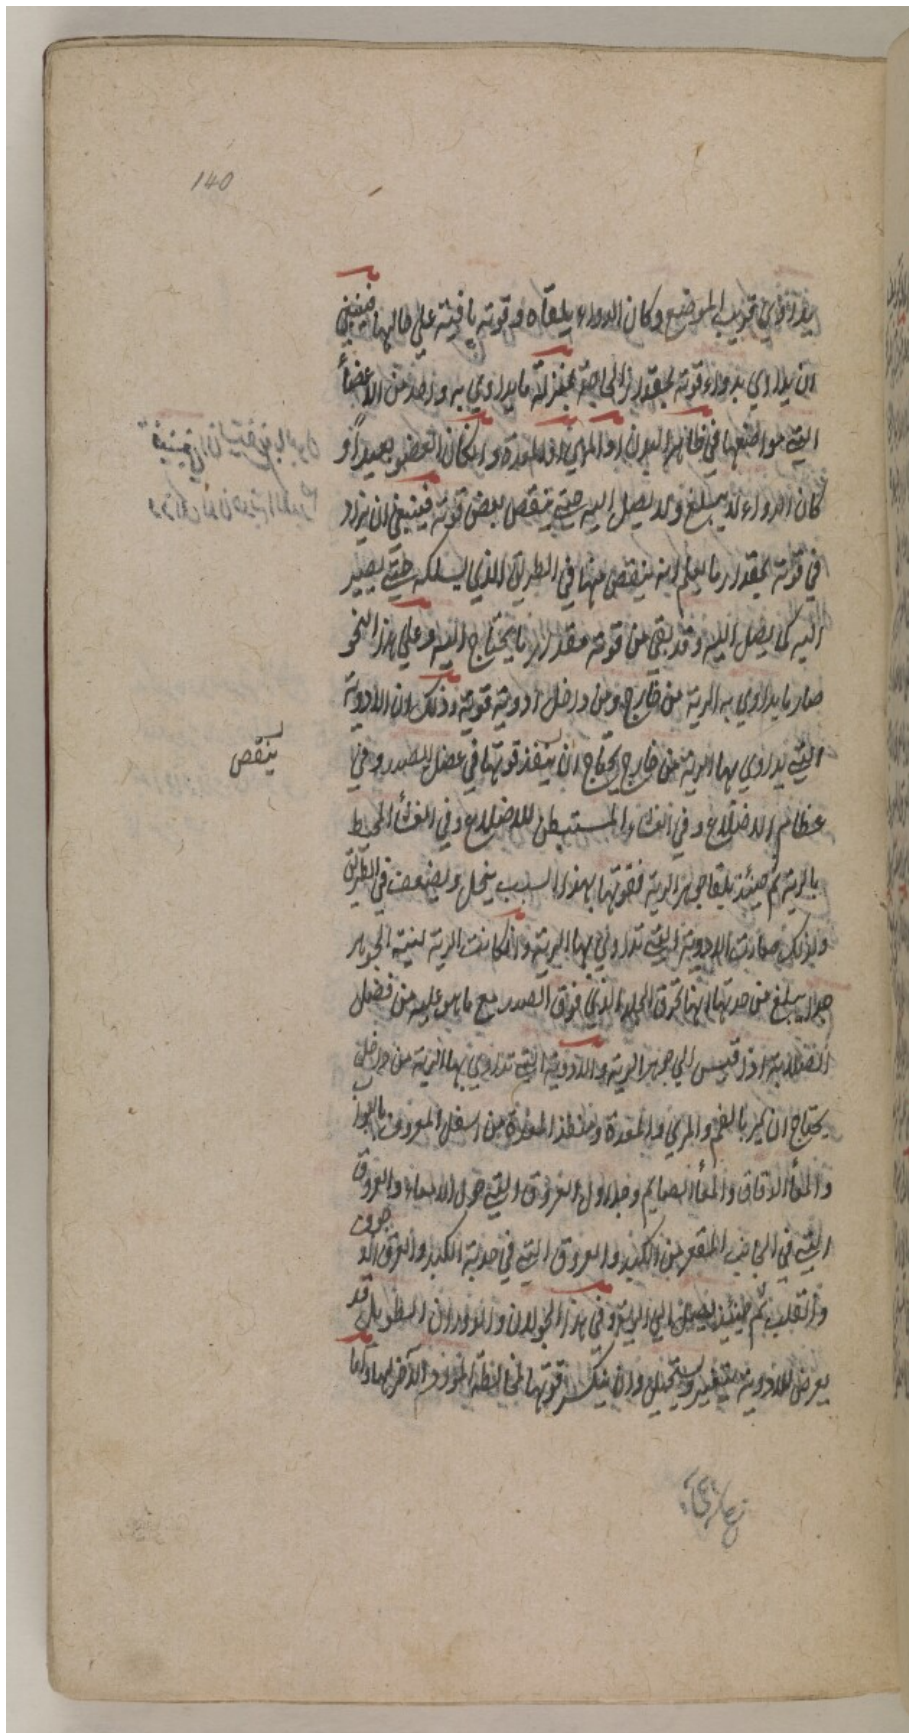 140
يداوي قريب الموضع وكان الدواء يلقاه وقوته باقية علي حالها فينبغي
ان يداوي بدواء قوته بمقدار الحاجة بمنزلة ما يداوي به واحد من الاعضأ
التي مواضعها في ظاهر البدن او المري او المعدة وان كان العضو بعيداً و
كان الدواء لا يبلغ ولا يصل اليه حتي ينقص بعض قوته فينبغي ان يزاد
في قوته بمقدار ما يعلم انه ينقص منها في الطريق الذي يسلكه حتي يصير
اليه كي يصل اليه وقد بقي من قوته مقدار ما يحتاج اليه وعلي هذا النحو
صار ما يداوي به الرية من خارج ومن داخل ادوية قوية وذلك ان الادوية
التي يداوي بها الرية من خارج يحتاج ان ينفذ قوتها في عضل الصدر وفي
ينقص
عظام الاضلاع وفي الغشاء المستبطن للاضلاع وفي الغشأ المحيط
بالرية ثم حينئذ يلقا جرم الرية فقوتها بهذا السبب ينحل ويضعف في الطريق
ولذلك صارت الادوية التي تداوي بها الرية وان كانت الرية لينة الجوهر
جدا يبلغ من حدتها انها تحرق الجلد الذي فوق الصدر مع ما هو عليه من فضل
الصلابة اذا قيس الي جوهر الرية والادوية التي تداوي بها الرية من داخل
يحتاج ان يمر بالفم والمري والمعدة ومنفذ المعدة من اسفل المعروف بالبواب
والمعأ الدقاق والمعأ الصايم وجداول العروق التي حول الامعاء والعروق
التي في الجانب المقعر من الكبد والعروق التي في حدبة الكبد والعرق الاجوف
والقلب ثم حينئذ يصل الي الرية وفي هذا الجولان والدوران الطويل قد
يعرض للادوية يتغير ويستحيل وان ينكسر قوتها لمخالطة المواد الاخر لها وكما